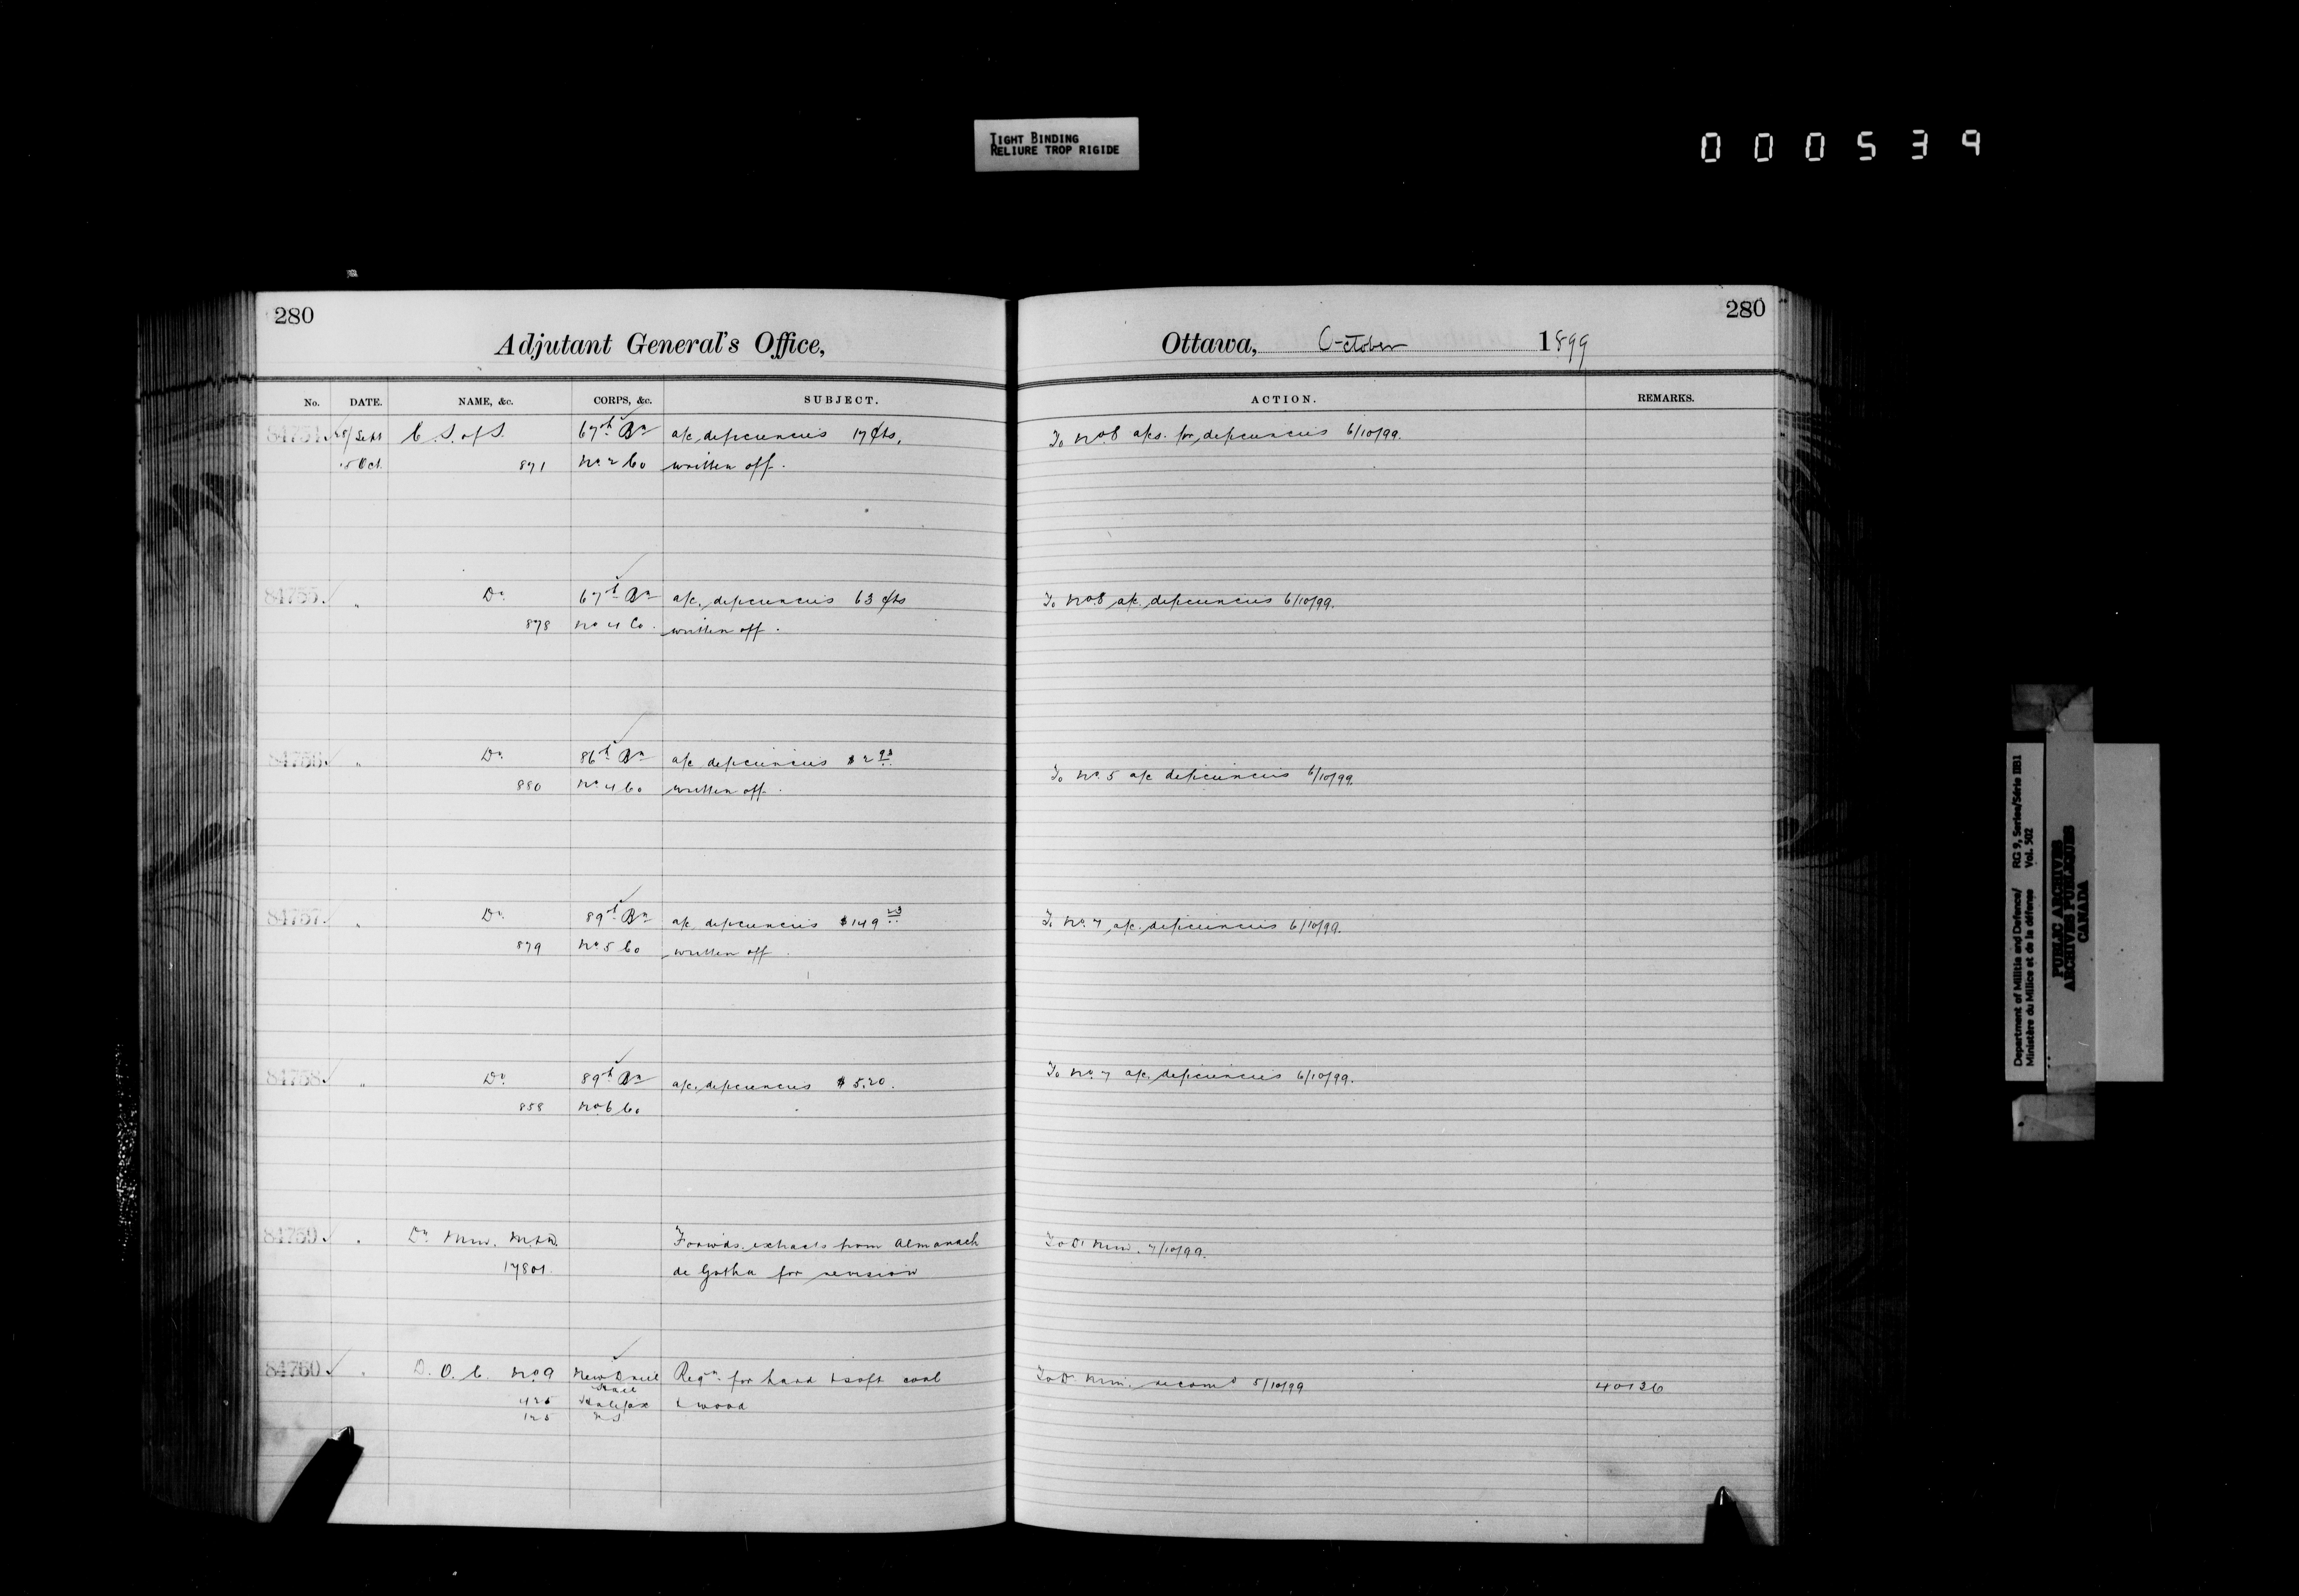 TIGHT BINDING
RELIURE TROP RIGIDE
000539
280
Adjutant General's Office,
No. DATE. NAME, &c. CORPS, &c. SUBJECT.
84754 28/Sept C. S. of S. 67th Bn a/c deficiencies 17 cts,
5 Oct. 871 No. 2 Co written off.
84755. " Do 67th Bn a/c. deficiencies 63 cts
878 No 4 Co. written off.
84756. " Do 86th Bn a/c deficiencies $2 93
880 No 4 Co written off.
84757. " Do 89th Bn a/c deficiencies $149 23
879 No 5 Co written off.
84758 " Do 89th Bn a/c. deficiencies $5.20.
858 No 6 Co
84759. " Dy Min. M&D. Forwds. extracts from Almanach
17801. de Gotha for revision
84760 " D. O. C. No 9 New Drill Reqn. for hard & soft coal
425 Halifax & wood
125 NS
280
Ottawa, October 1899
ACTION. REMARKS.
To No 8 a/cs. for deficiencies 6/10/99.
To No 8 a/c. deficiencies 6/10/99.
To No. 5 a/c deficiencies 6/10/99.
To No. 7 a/c. deficiencies 6/10/99.
To No. 7 a/c. deficiencies 6/10/99.
To D. Min. 7/10/99.
To D. Min. recomd 5/10/99 40136
Department of Militia and Defence/ RG 9, Series/Série IIB1
Ministère du Milice et de la défense Vol. 502
PUBLIC ARCHIVES
ARCHIVES PUBLIQUES
CANADA